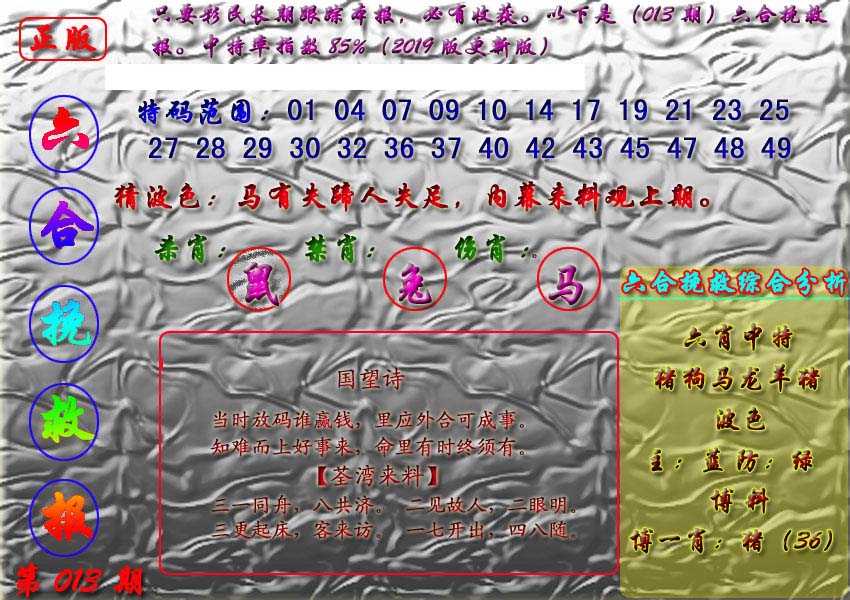 正版
只要彩民长期跟踪本报，必有收获。以下是（013期）六合挽救
报。中特率指数85%（2019版更新版）
六合挽救报
第013期
特码范围：01 04 07 09 10 14 17 19 21 23 25
27 28 29 30 32 36 37 40 42 43 45 47 48 49
猜波色：马有失蹄人失足，内幕来料观上期。
杀肖：鼠 禁肖：兔 伤肖：马。
国望诗
当时放码谁赢钱，里应外合可成事。
知难而上好事来，命里有时终须有。
【荃湾来料】
三一同舟，八共济。 二见故人，二眼明。
三更起床，客来访。 一七开出，四八随。
六合挽救综合分析
六肖中特
猪狗马龙羊猪
波色
主：蓝防：绿
博料
博一肖：猪（36）